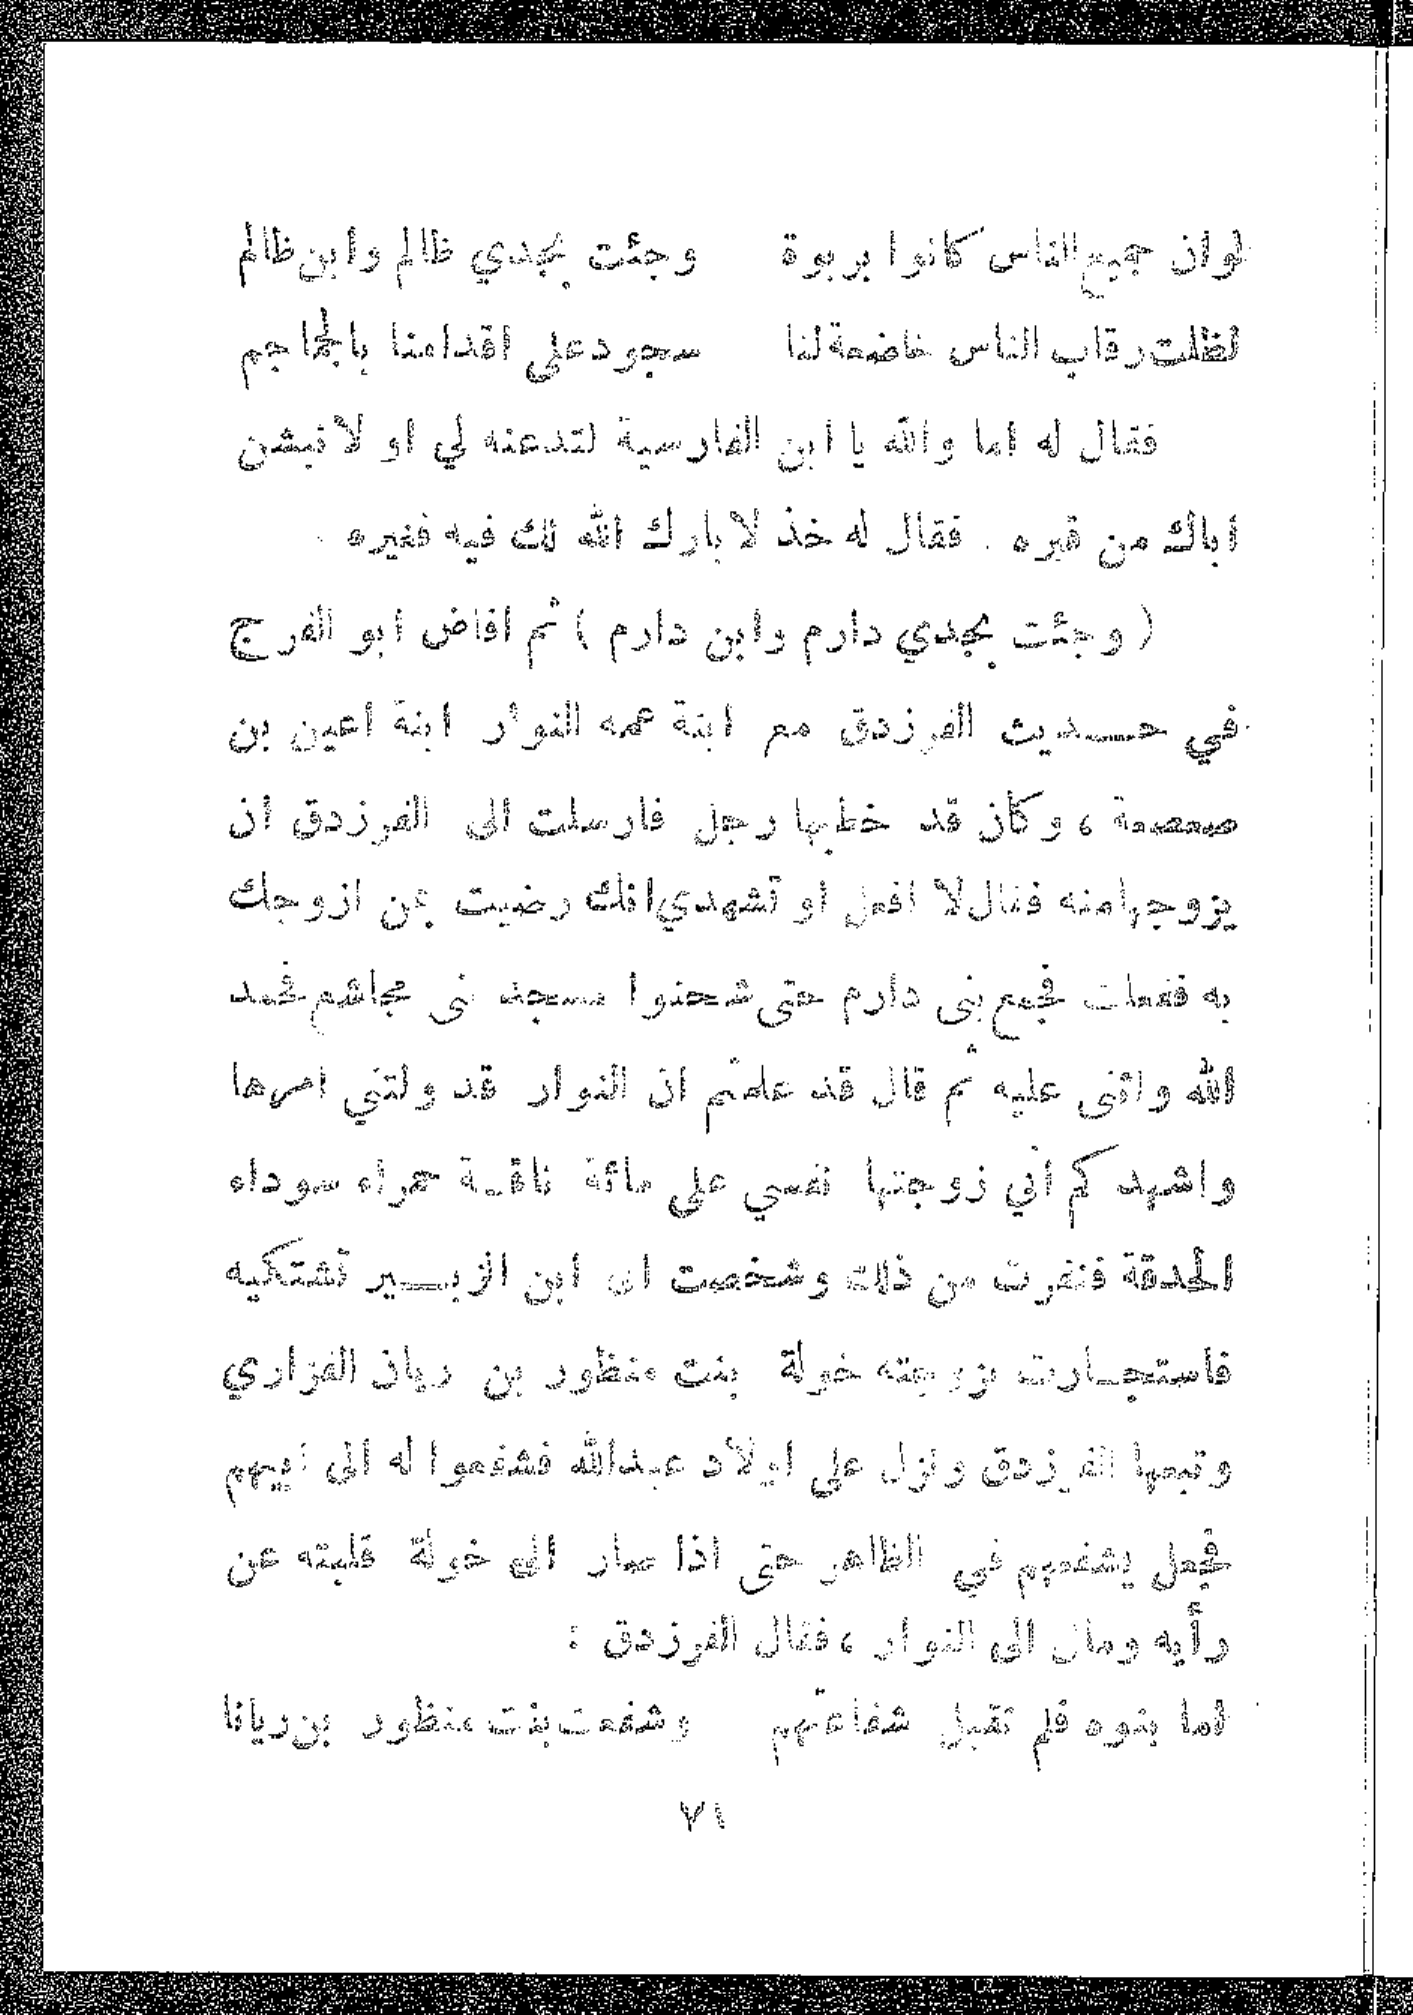 لوان جميع الناس كانوا بربوة وجئت بجدي ظالم وابن ظالم
لظلت رقاب الناس خاضعة لنا سجود على اقدامنا بالجماجم
فقال له اما والله يا ابن الفارسية لتدعنه لي او لانبشن
اباك من قبره . فقال له خذ لا بارك الله لك فيه فغيره .
( وجئت بجدي دارم وابن دارم ) ثم افاض ابو الفرج
في حديث الفرزدق مع ابنة عمه النوار ابنة اعين بن
صعصعة ، وكان قد خطبها رجل فارسلت الى الفرزدق ان
يزوجها منه فقال لا افعل او تشهدي انك رضيت بمن ازوجك
به ففعلت فجمع بنى دارم حتى شحنوا مسجد نى مجاشع فحمد
الله واثنى عليه ثم قال قد علمتم ان النوار قد ولتني امرها
واشهد كم أني زوجتها نفسي على مائة ناقة حمراء سوداء
الحدقة فنفرت من ذلك وشخصت الى ابن الزبير تشتكيه
فاستجارت بزوجته خولة بنت منظور بن ريان الفزاري
وتبعها الفرزدق ونزل على اولاد عبدالله فشفعوا له الى ابيهم
فجعل يشفعهم في الظاهر حتى اذا صار الى خولة قلبته عن
رأيه ومال الى النوار ، فقال الفرزدق :
اما بنوه فلم تقبل شفاعتهم وشفعت بنت منظور بن ريانا
٧١